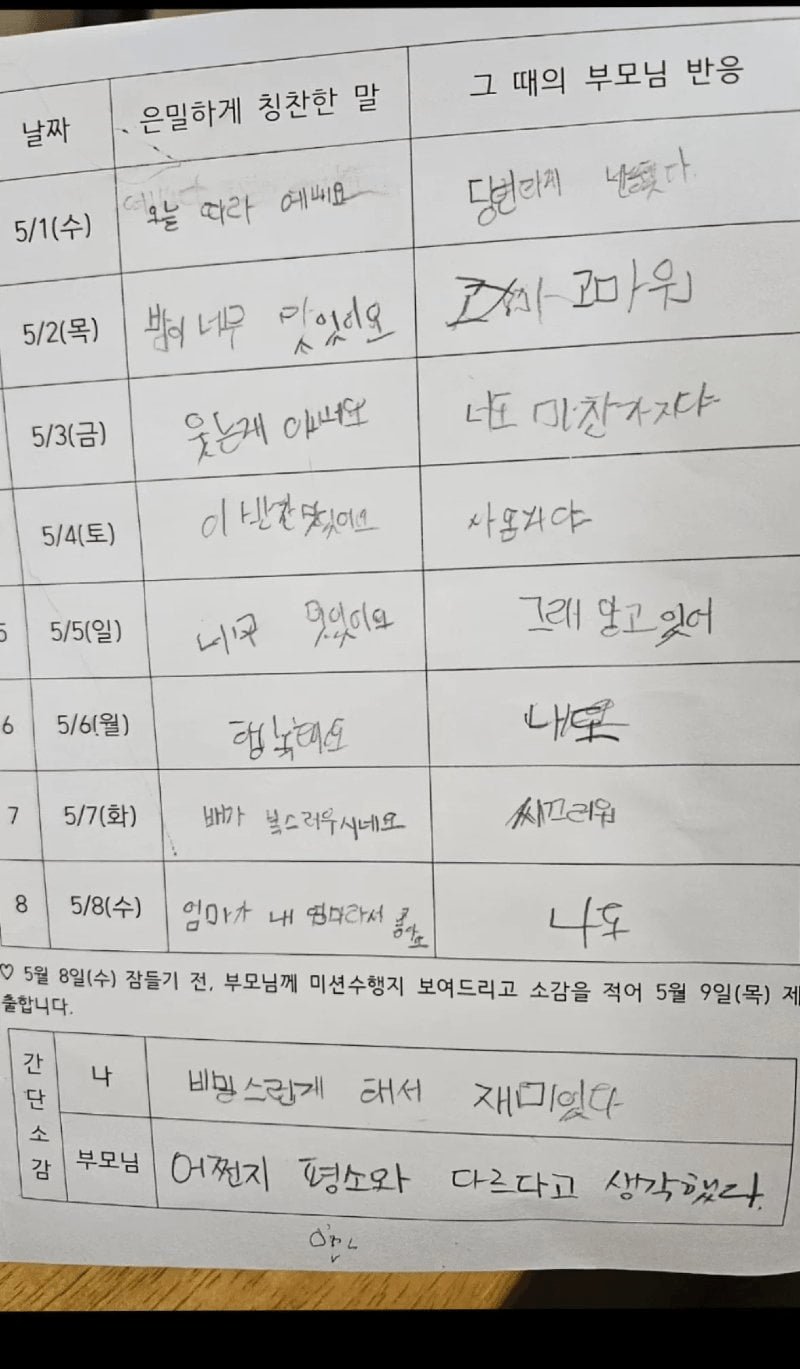 날짜 은밀하게 칭찬한 말 그 때의 부모님 반응
5/1(수) 오늘 따라 예뻐요
5/2(목) 밥이 너무 맛있어요 고마워
5/3(금) 웃는게 너도 마찬가지야
5/4(토) 이 반찬 맛있어요
5 5/5(일) 너무 멋있어요 그래 알고 있어
6 5/6(월) 행복해요 내도
7 5/7(화) 배가 복스러우시네요 씨끄러워
8 5/8(수) 엄마가 내 엄마라서 좋아요 나도
♡ 5월 8일(수) 잠들기 전, 부모님께 미션수행지 보여드리고 소감을 적어 5월 9일(목) 제
출합니다.
간단소감
나 비밍스런게 태서 재미있다
부모님 어쩐지 평소와 다르다고 생각했다.